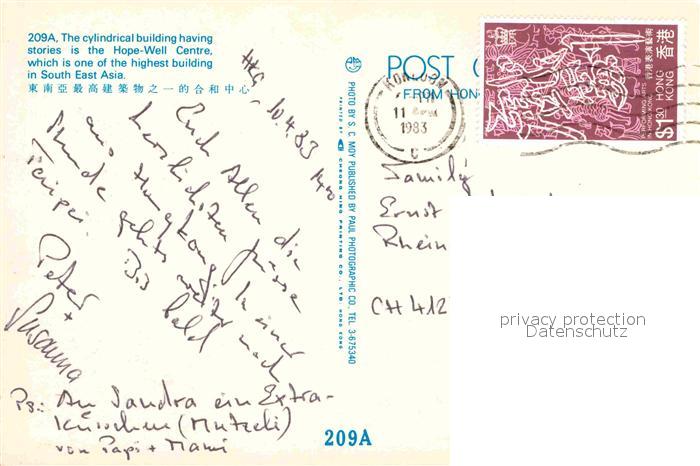 209A, The cylindrical building having
stories is the Hope-Well Centre,
which is one of the highest building
in South East Asia.
東南亞最高建築物之一的合和中心
HKG, 10.4.83 1400
Euch Allen die
herzlichsten Grüsse
aus Hongkong. In einer
Stunde gehts weiter nach
Taipei. Bis bald
Peter +
Susanna
Ps.: An Sandra ein Extra-
Küsschen (Mutzeli)
von Papi + Mami
PHOTO BY S. C. MOY PUBLISHED BY PAUL PHOTOGRAPHIC CO., TEL. 3-675340
PRINTED BY CHEONG MING PRINTING CO., LTD. HONG KONG
209A
POST C
FROM HON
KOWLOON
11
1983
C
香港表演藝術
PERFORMING ARTS
IN HONG KONG
$1.30
香港
HONG KONG
Family
Ernst
Rhein
CH 412
privacy protection
Datenschutz